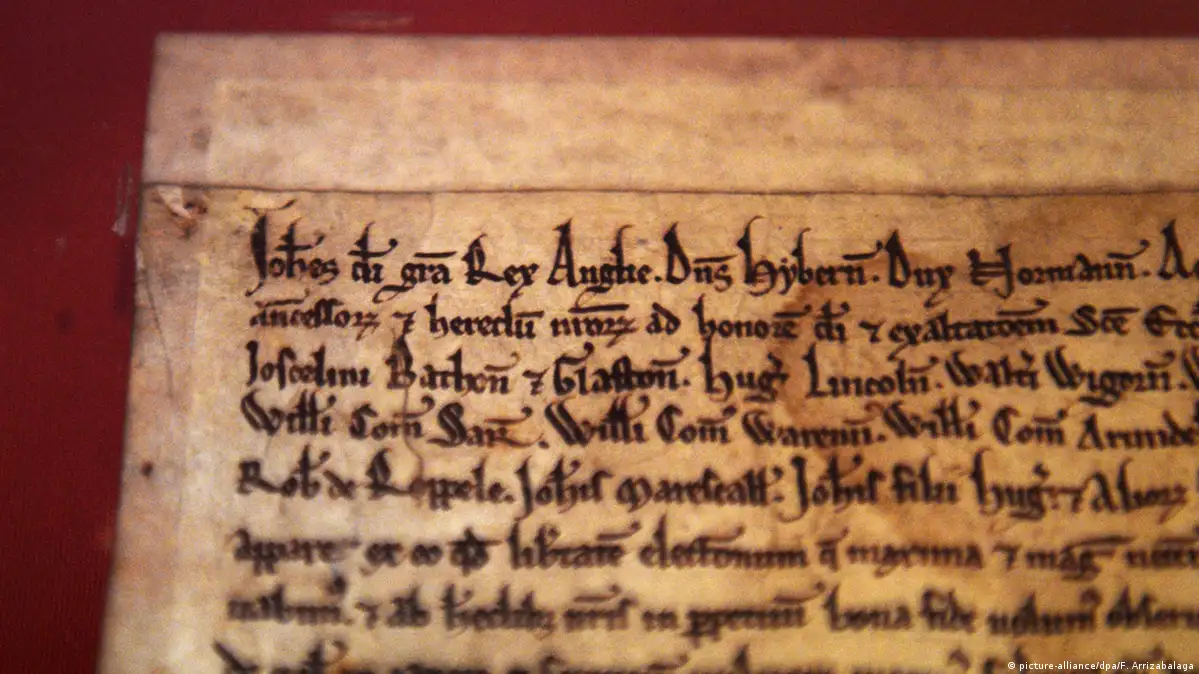 Joh̄es dī gr̄a Rex Anglie. Dn̄s Hybern̄. Dux Normann̄. A
ancessoꝝ ⁊ heredū nr̄oꝝ ad honorē dī ⁊ exaltatōem Sc̄e Ecc
Joscelini Bathon̄ ⁊ Glaston̄. Huḡ Lincoln̄. Walt̄i Wigorn̄.
Will̄i Com̄ Sar̄. Will̄i Com̄ Warenn̄. Will̄i Com̄ Arunde
Rob̄ de Roppele. Joh̄is Marescall̄. Joh̄is filii Huḡ. ⁊ Alioꝝ
appare ex eo qd̄ lib̄tatē electionum q̄ maxima ⁊ maḡ
⁊ ab h̄edibꝫ nr̄is in ꝑpetuū bona fide volum̄ obser
© picture-alliance/dpa/F. Arrizabalaga